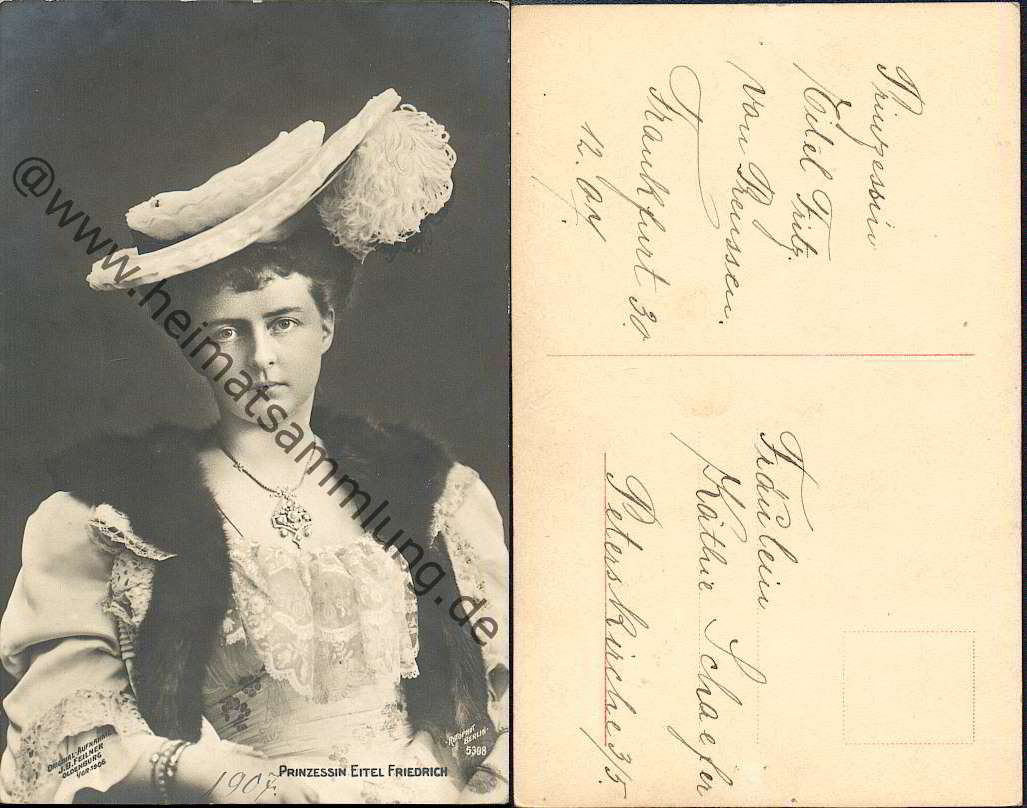 @www.heimatsammlung.de
ORIGINAL-AUFNAHME
J.B. FEILNER
OLDENBURG
VER. 1906
ROTOPHOT
BERLIN
5308
1907.
PRINZESSIN EITEL FRIEDRICH
Prinzessin
Eitel Fritz.
von Preussen.
Frankfurt 30.
12. 07
Fräulein
Käthie Schaefer
Peterskirche 35.